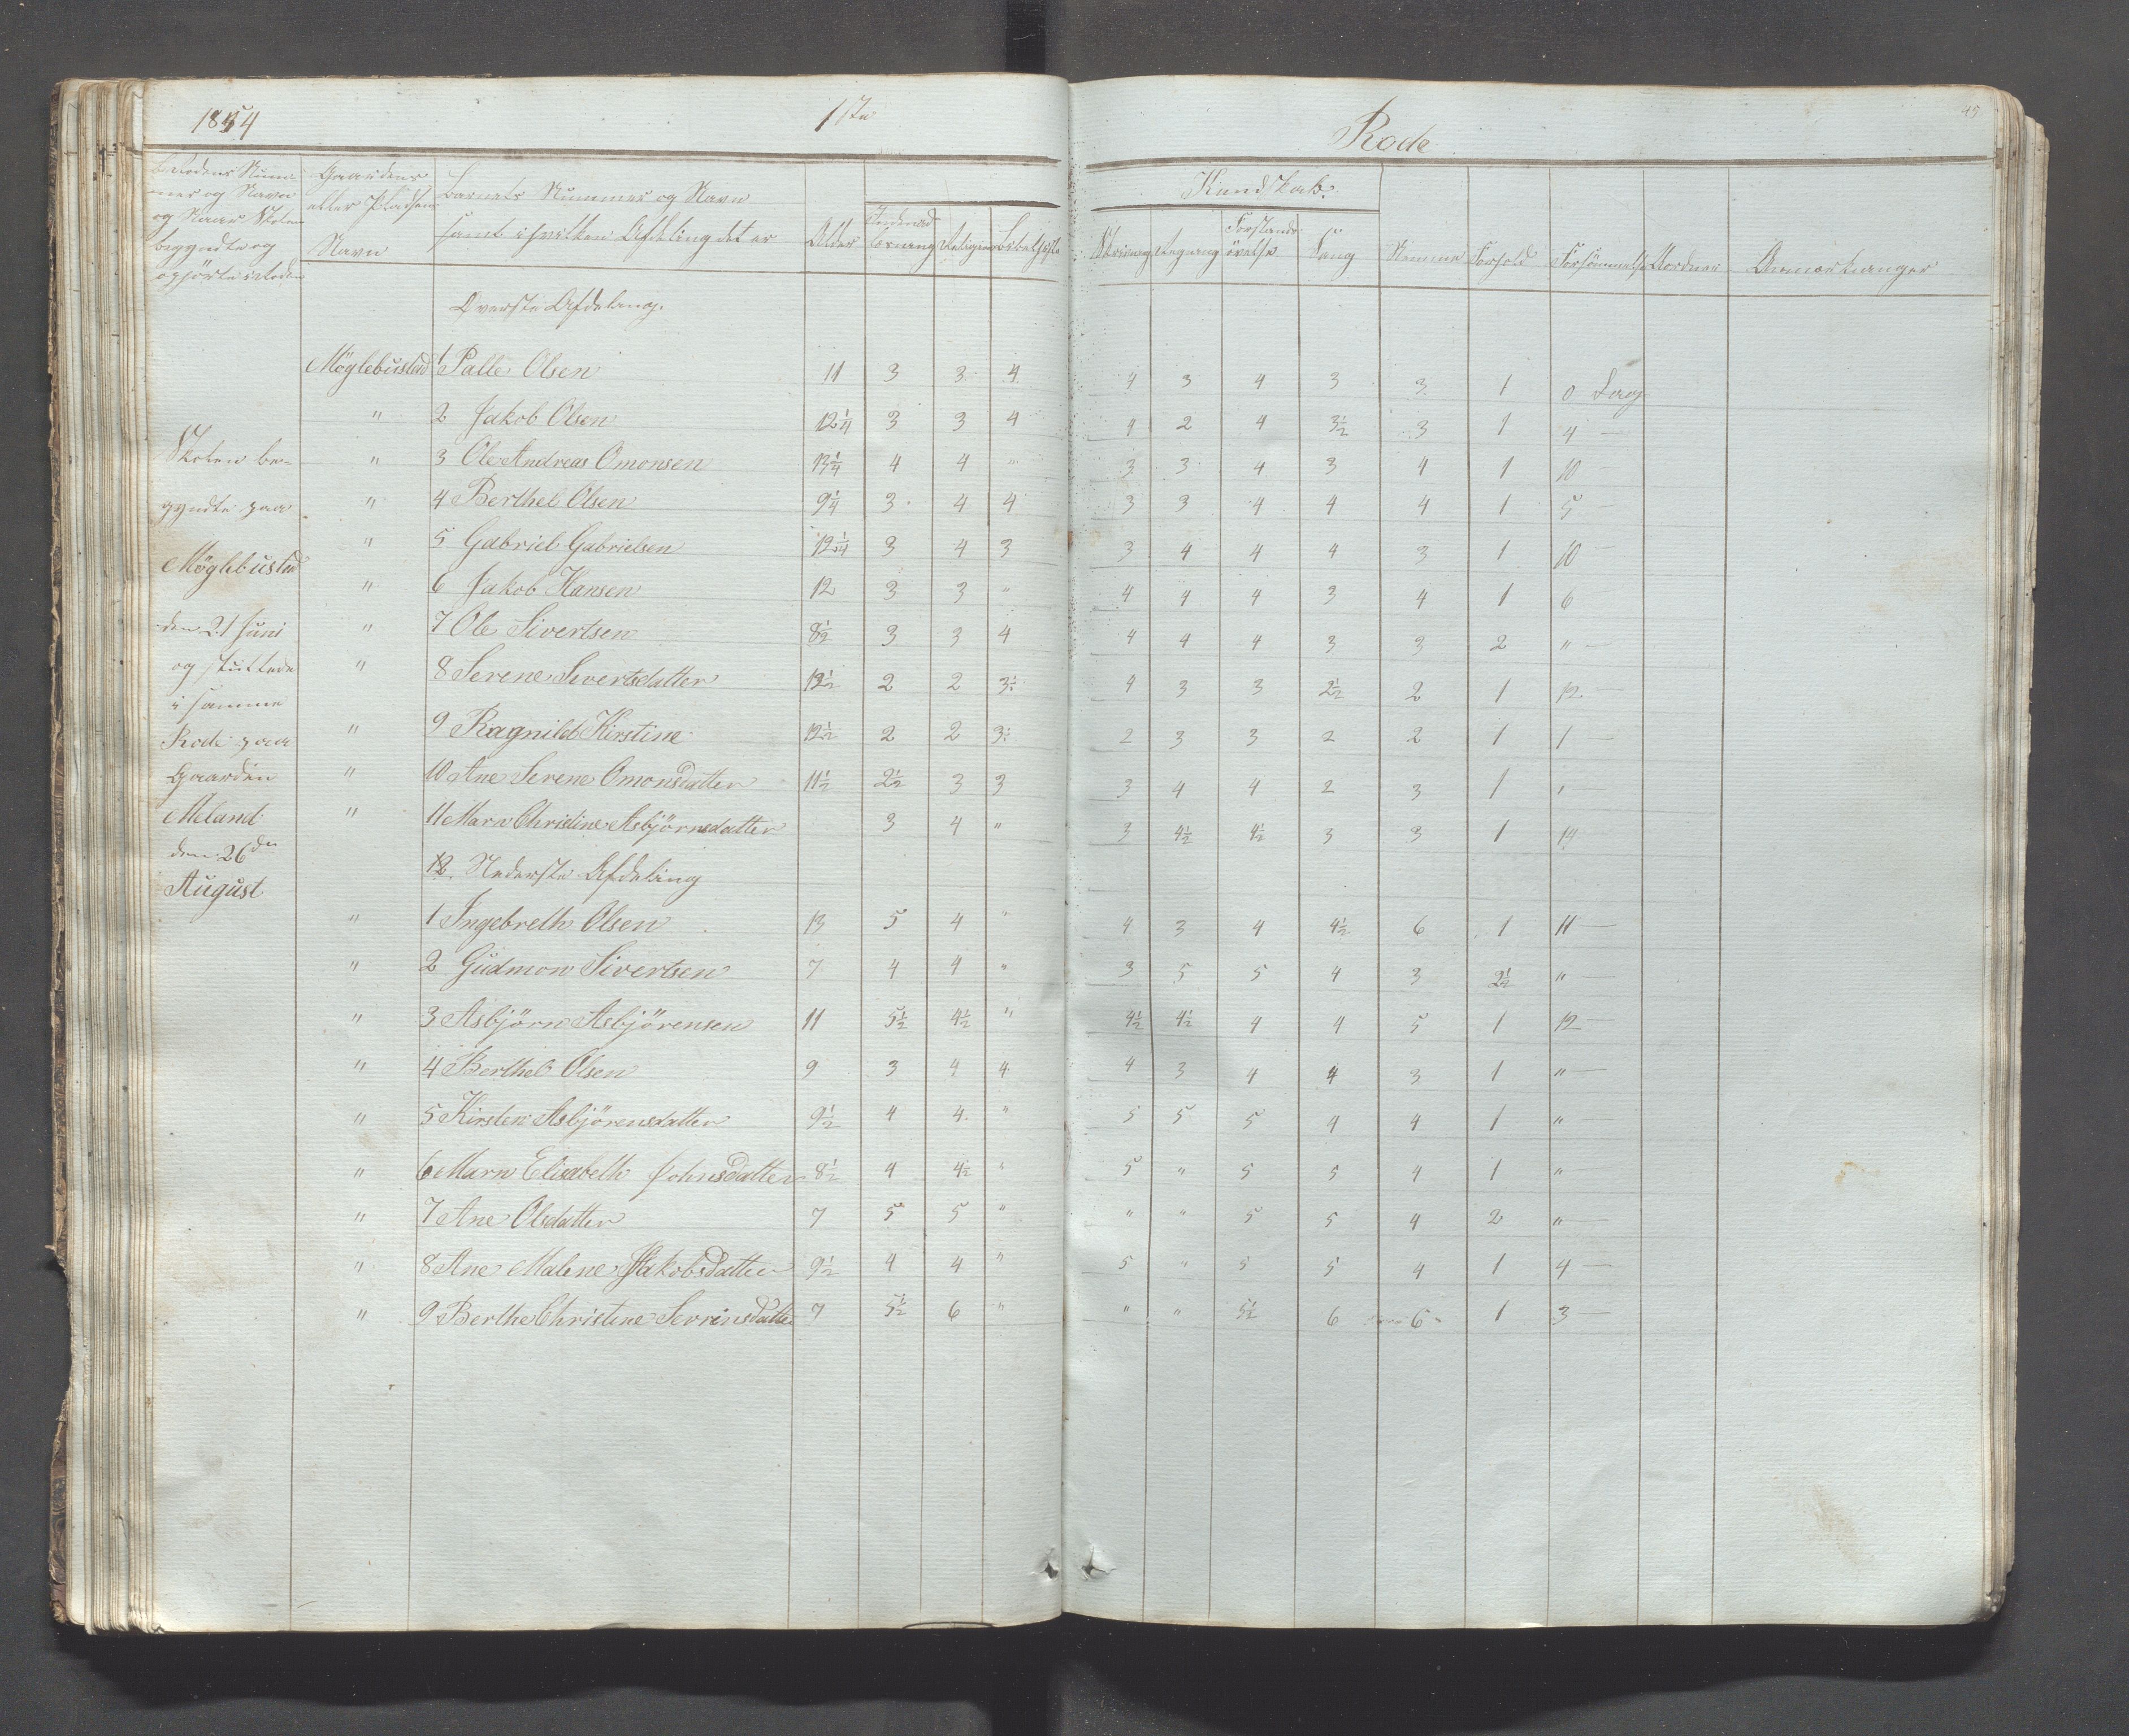 1854 1ste Rode 45
Rodens Num-
mer og Navn
og Naar Skolen
begyndte og
ophörte i Roden
Gaardens
eller Pladsens
Navn
Barnets Nummer og Navn
samt i hvilken Afdeling det er
Alder
Kundskab.
Religion
Skrivning Regning Forstands-
övelse Sang Nemme Forhold Forsömmelse Anmærkninger
Överste Afdeling.
Möglebustad 1 Palle Olsen 11 3 3 4 4 3 4 3 3 1 0 Dag
" 2 Jakob Olsen 12 1/4 3 3 4 4 2 4 3 1/2 3 1 4 —
" 3 Ole Andreas Omonsen 13 1/4 4 4 " 3 3 4 3 4 1 10 —
" 4 Berthel Olsen 9 1/4 3 4 4 3 3 4 4 4 1 5 —
" 5 Gabriel Gabrielsen 12 1/4 3 4 3 3 4 4 4 3 1 10 —
" 6 Jakob Hansen 12 3 3 " 4 4 4 3 4 1 6 —
" 7 Ole Sivertsen 8 1/2 3 3 4 4 4 4 3 3 2 " —
" 8 Serene Sivertsdatter 12 1/2 2 2 3 1/2 4 3 3 2 1/2 2 1 12 —
" 9 Ragnild Kirstine 12 1/2 2 2 3 1/2 2 3 3 2 2 1 1 —
" 10 Ane Serene Omonsdatter 11 1/2 2 1/2 3 3 3 4 4 2 3 1 " —
" 11 Marn Christine Asbjörnsdatter 3 4 " 3 4 1/2 4 1/2 3 3 1 14 —
12. Nederste Afdeling
" 1 Ingebreth Olsen 13 5 4 " 4 3 4 4 1/2 6 1 11 —
" 2 Gudmon Sivertsen 7 4 4 " 3 5 5 4 3 2 1/2 " —
" 3 Asbjörn Asbjörensen 11 5 1/2 4 1/2 " 4 1/2 4 1/2 4 4 5 1 12 —
" 4 Berthel Olsen 9 3 4 4 4 3 4 4 3 1 " —
" 5 Kirsten Asbjörensdatter 9 1/2 4 4 " 5 5 5 4 4 1 " —
" 6 Marn Elisabeth Johnsdatter 8 1/2 4 4 1/2 " 5 " 5 5 4 1 " —
" 7 Ane Olsdatter 7 5 5 " " " 5 5 4 2 " —
" 8 Ane Malene Jakobsdatter 9 1/2 4 4 " 5 " 5 5 4 1 4 —
" 9 Berthe Christine Sevrinsdatter 7 5 1/2 6 " " " 5 1/2 6 6 1 3 —
Skolen be-
gyndte paa
Möglebustad
den 21 Juni
og sluttede
i samme
Rode paa
Gaarden
Meland
den 26de
August